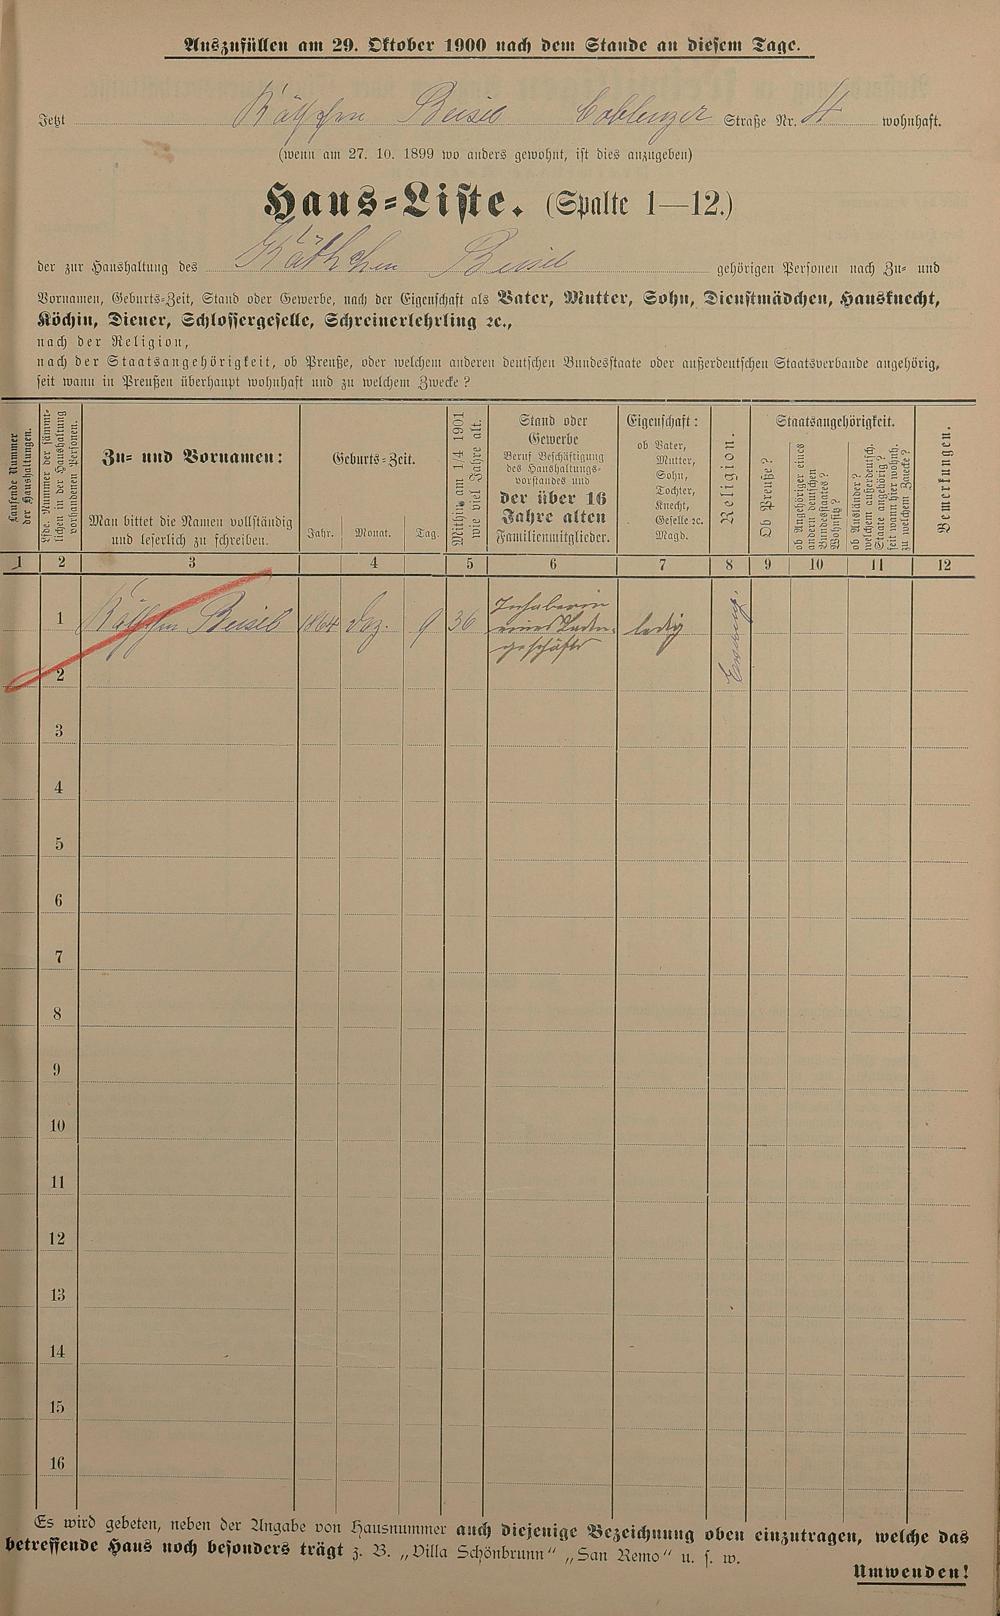 Auszufüllen am 29. Oktober 1900 nach dem Stande an diesem Tage.
Jetzt Käthchen Beisel Coblenzer Straße Nr. 4 wohnhaft.
(wenn am 27. 10. 1899 wo anders gewohnt, ist dies anzugeben)
Haus-Liste. (Spalte 1—12.)
der zur Haushaltung des Käthchen Beisel gehörigen Personen nach Zu- und
Vornamen, Geburts-Zeit, Stand oder Gewerbe, nach der Eigenschaft als Vater, Mutter, Sohn, Dienstmädchen, Hausknecht,
Köchin, Diener, Schlossergeselle, Schreinerlehrling ꝛc.,
nach der Religion,
nach der Staatsangehörigkeit, ob Preuße, oder welchem anderen deutschen Bundesstaate oder außerdeutschen Staatsverbande angehörig,
seit wann in Preußen überhaupt wohnhaft und zu welchem Zwecke?
Laufende Nummer
der Haushaltungen.
Lfde. Nummer der sämmt-
lichen in der Haushaltung
vorhandenen Personen.
Zu- und Vornamen:
Man bittet die Namen vollständig
und leserlich zu schreiben.
Geburts-Zeit.
Jahr. Monat. Tag.
Mithin am 1/4 1901
wie viel Jahre alt.
Stand oder
Gewerbe
Beruf Beschäftigung
des Haushaltungs-
vorstandes und
der über 16
Jahre alten
Familienmitglieder.
Eigenschaft:
ob Vater,
Mutter,
Sohn,
Tochter,
Knecht,
Geselle ꝛc.
Magd.
Religion.
Staatsangehörigkeit.
Ob Preuße?
ob Angehöriger eines
andern deutschen
Bundesstaates?
Wohnsitz?
ob Ausländer?
welchem außerdeutsch.
Staate angehörig?
seit wann hier wohnh.
zu welchem Zwecke?
Bemerkungen.
1 2 3 4 5 6 7 8 9 10 11 12
1 Käthchen Beisel 1864 Dez. 9 36 Inhaberin eines Laden- geschäfts ledig Evang.
2
3
4
5
6
7
8
9
10
11
12
13
14
15
16
Es wird gebeten, neben der Angabe von Hausnummer auch diejenige Bezeichnung oben einzutragen, welche das
betreffende Haus noch besonders trägt z. B. „Villa Schönbrunn“ „San Remo“ u. s. w.
Umwenden!